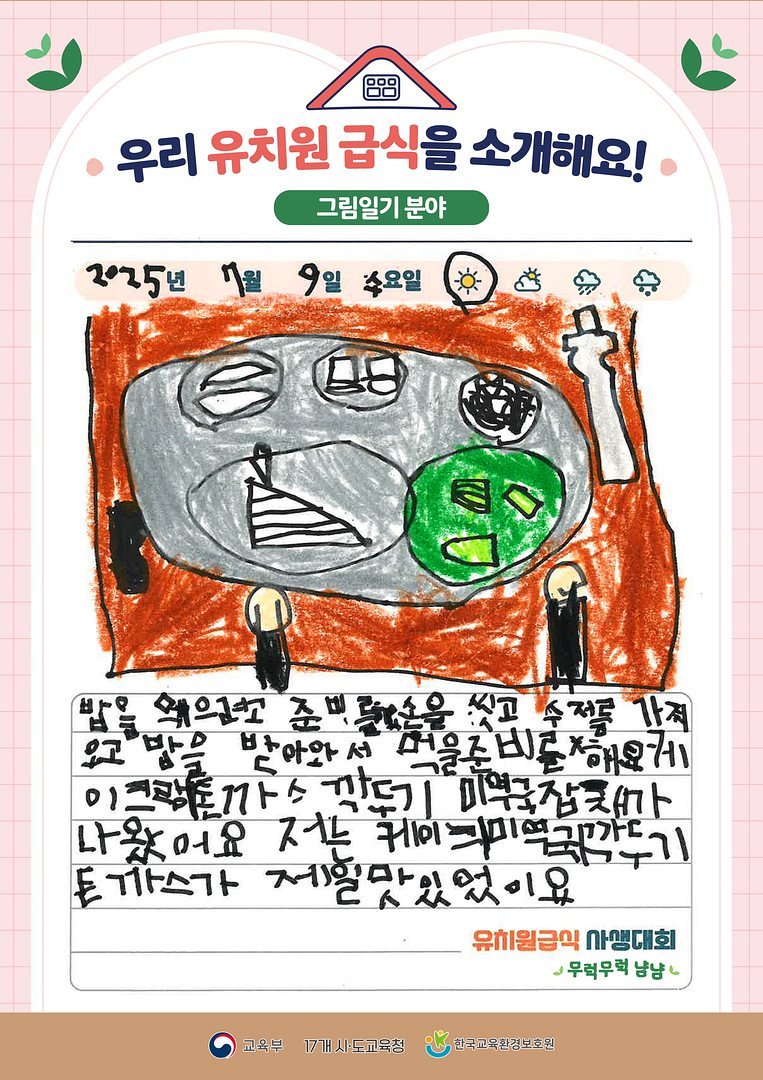 우리 유치원 급식을 소개해요!
그림일기 분야
2025년 7월 9일 수요일
밥을 먹으려고 준비를 손을 씻고 수저를 가져
오고 밥을 받아와서 먹을준비를 해요 케
이크랑 돈까스 깍두기 미역국 잡채가
나왔어요 저는 케이크 미역국 깍두기
돈까스가 제일 맛있었이요
유치원급식 사생대회
무럭무럭 냠냠
교육부 17개 시·도교육청 한국교육환경보호원